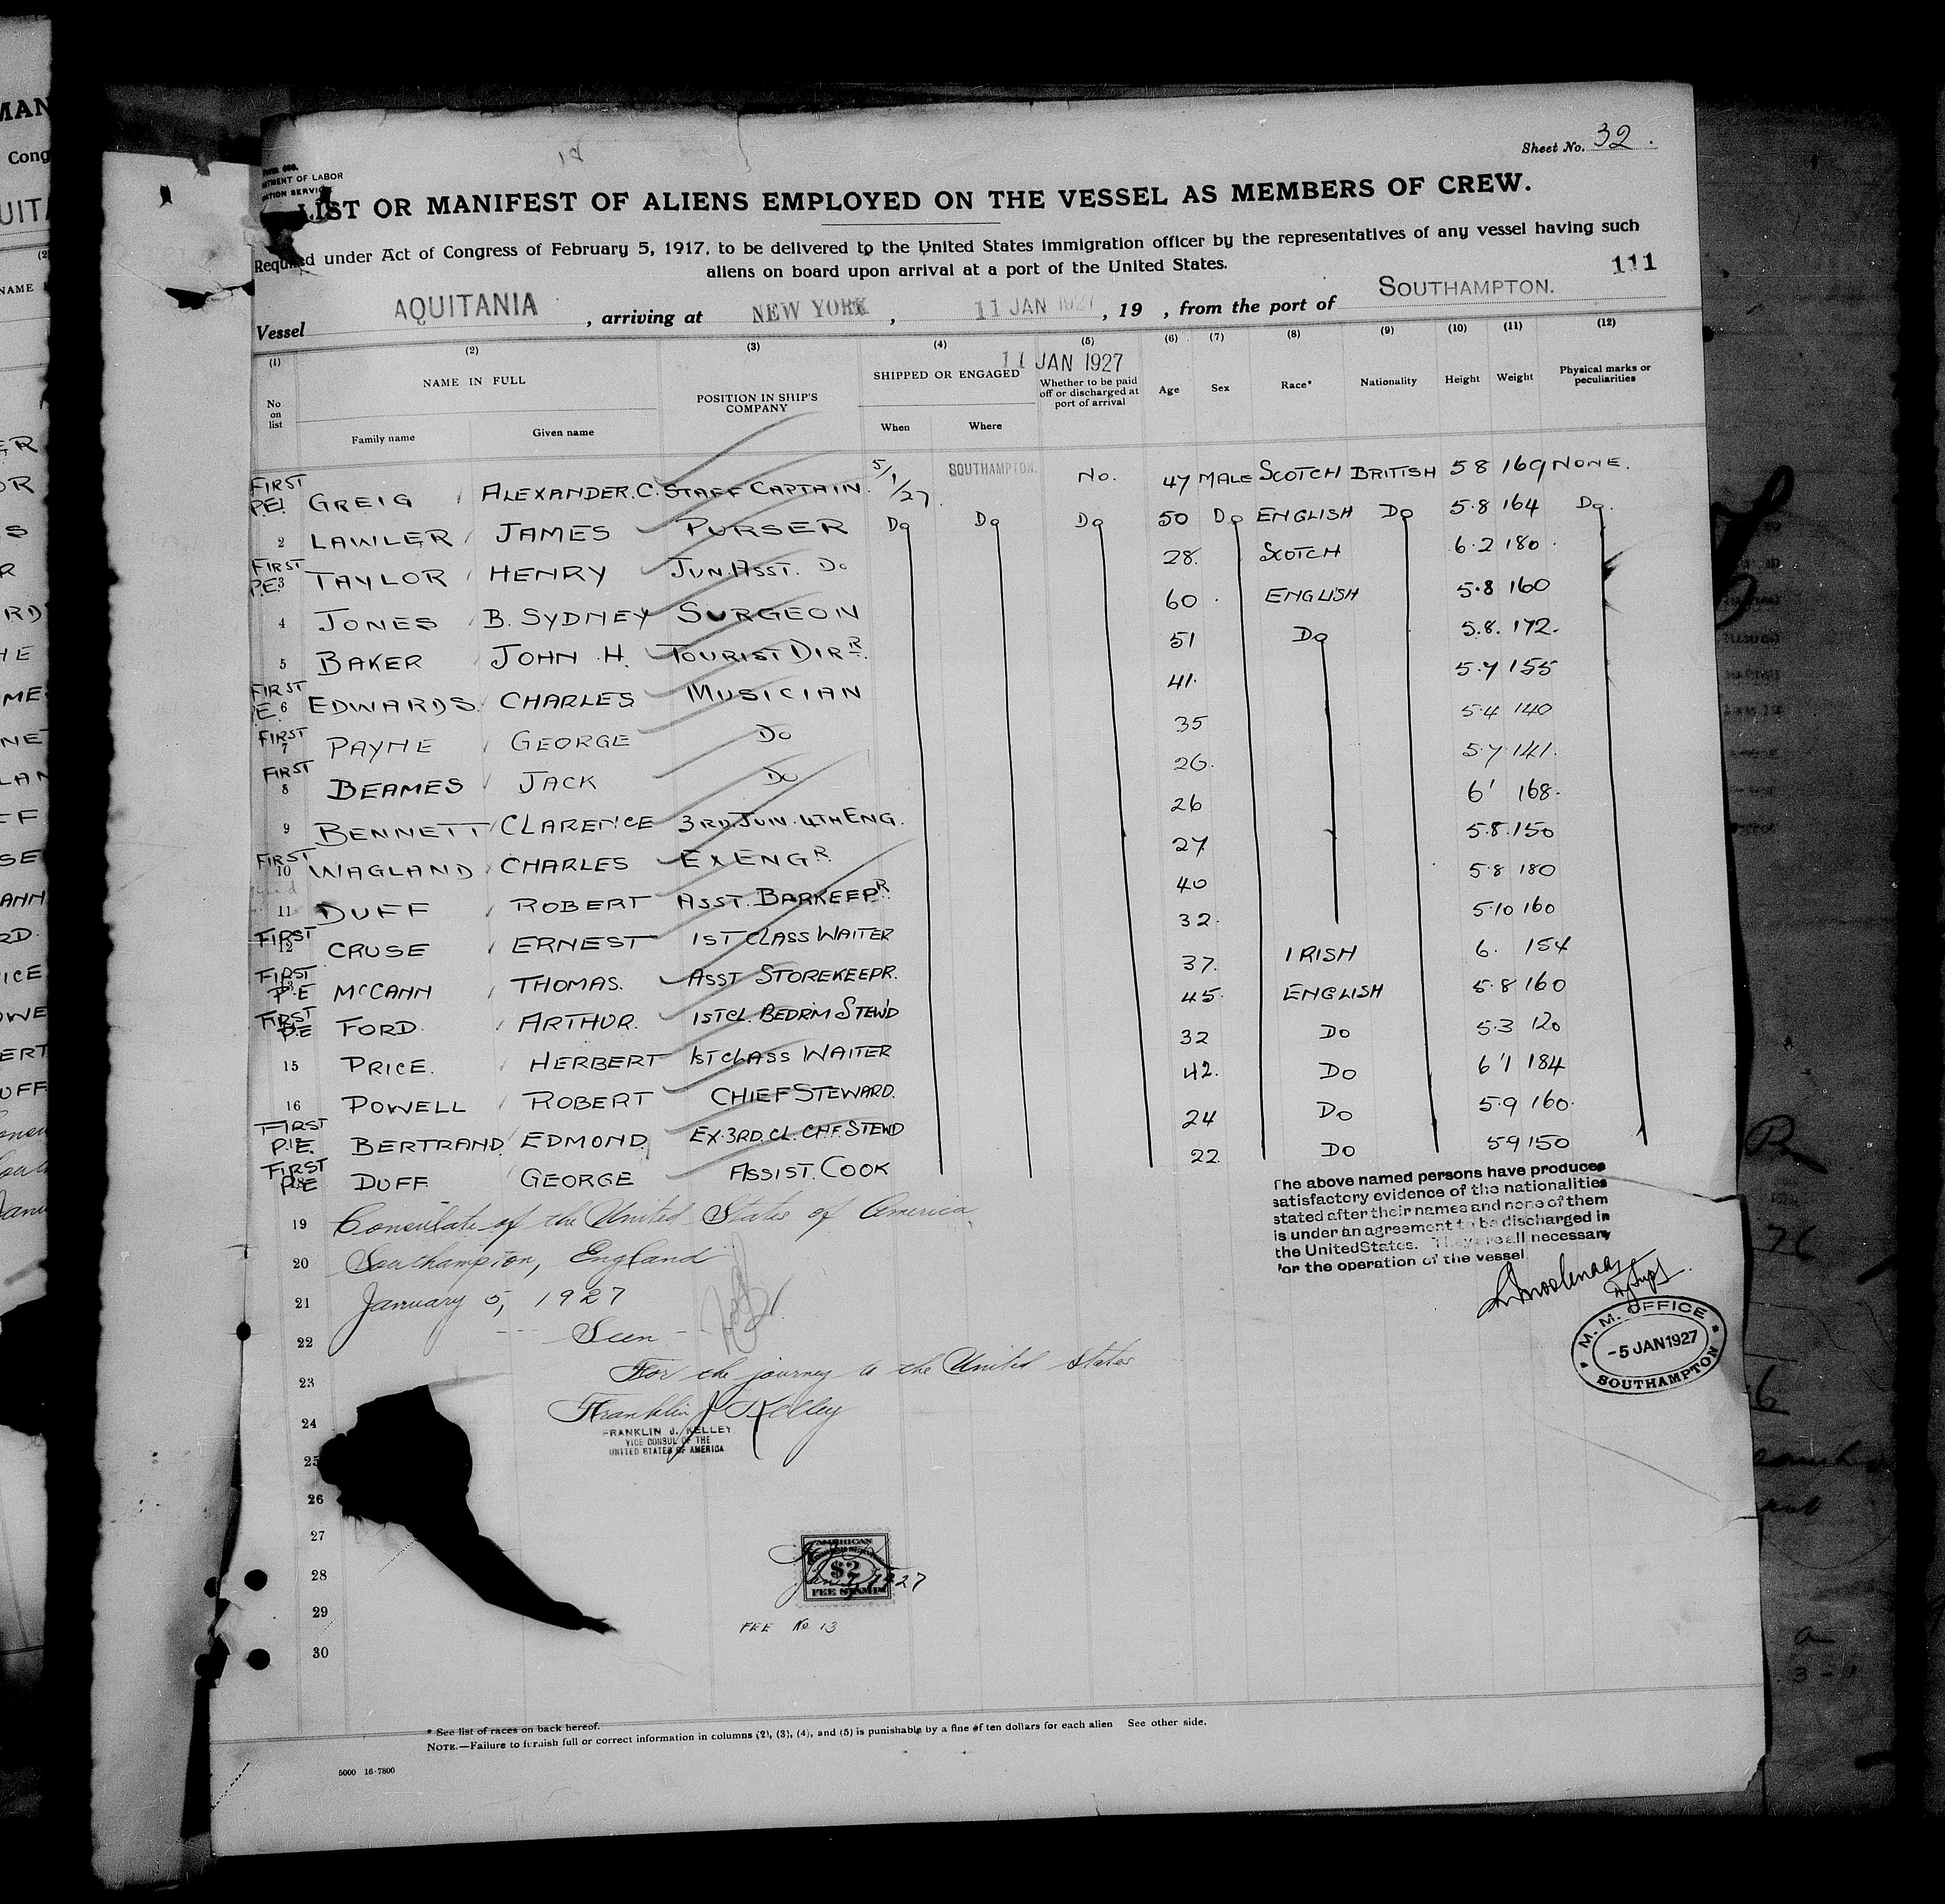 Sheet No. 32.
Form 680.
LIST OR MANIFEST OF ALIENS EMPLOYED ON THE VESSEL AS MEMBERS OF CREW.
Required under Act of Congress of February 5, 1917, to be delivered to the United States immigration officer by the representatives of any vessel having such
aliens on board upon arrival at a port of the United States.
111
Vessel AQUITANIA , arriving at NEW YORK , 11 JAN 1927 , 19 , from the port of SOUTHAMPTON.
(1) (2) (3) (4) (5) (6) (7) (8) (9) (10) (11) (12)
11 JAN 1927
No on list NAME IN FULL POSITION IN SHIP'S COMPANY SHIPPED OR ENGAGED Whether to be paid off or discharged at port of arrival Age Sex Race* Nationality Height Weight Physical marks or peculiarities
Family name Given name When Where
FIRST P.E. 1 GREIG ALEXANDER.C. STAFF CAPTAIN. 5/1/27. SOUTHAMPTON. No. 47 MALE SCOTCH BRITISH 5 8 169 NONE.
2 LAWLER JAMES PURSER Do Do Do 50 Do ENGLISH Do 5.8 164 Do.
FIRST P.E. 3 TAYLOR HENRY JUN.ASST. Do 28. SCOTCH 6.2 180.
4 JONES B. SYDNEY SURGEON 60. ENGLISH 5.8 160
5 BAKER JOHN H. TOURIST DIRR. 51 Do 5.8. 172.
FIRST P.E. 6 EDWARDS. CHARLES MUSICIAN 41. 5.7 155
FIRST 7 PAYNE GEORGE Do 35 5.4 140
FIRST 8 BEAMES JACK Do 26. 5.7 141.
9 BENNETT CLARENCE 3RD.JUN.4TH ENG. 26 6' 168.
FIRST 10 WAGLAND CHARLES EX ENGR. 27 5.8.150
11 DUFF ROBERT ASST. BARKEEPR. 40 5.8 180
FIRST 12 CRUSE ERNEST 1ST CLASS WAITER 32. 5.10 160
FIRST P.E 13 McCANN THOMAS. ASST STOREKEEPR. 37. IRISH 6. 154
FIRST P.E 14 FORD. ARTHUR. 1ST CL. BEDRM STEWD 45. ENGLISH 5.8 160
15 PRICE. HERBERT 1ST CLASS WAITER 32 Do 5.3 120
16 POWELL ROBERT CHIEF STEWARD. 42. Do 6'1 184
FIRST P.E. 17 BERTRAND EDMOND EX.3RD.CL.CHF.STEWD 24 Do 5.9 160.
FIRST P.E 18 DUFF GEORGE ASSIST. COOK 22 Do 5 9 150
The above named persons have produced
satisfactory evidence of the nationalities
stated after their names and none of them
is under an agreement to be discharged in
the United States. They are all necessary
for the operation of the vessel.
19 Consulate of the United States of America
20 Southampton, England
21 January 5, 1927
22 Seen
23 For the journey to the United States
24 Franklin J Kelley
FRANKLIN J. KELLEY
VICE CONSUL OF THE
UNITED STATES OF AMERICA
M. M. OFFICE
-5 JAN 1927
SOUTHAMPTON
25
26
27
28
29
30
AMERICAN
$2
FEE STAMP
FEE No 13
* See list of races on back hereof.
NOTE.—Failure to furnish full or correct information in columns (2), (3), (4), and (5) is punishable by a fine of ten dollars for each alien See other side.
5000 16-7800